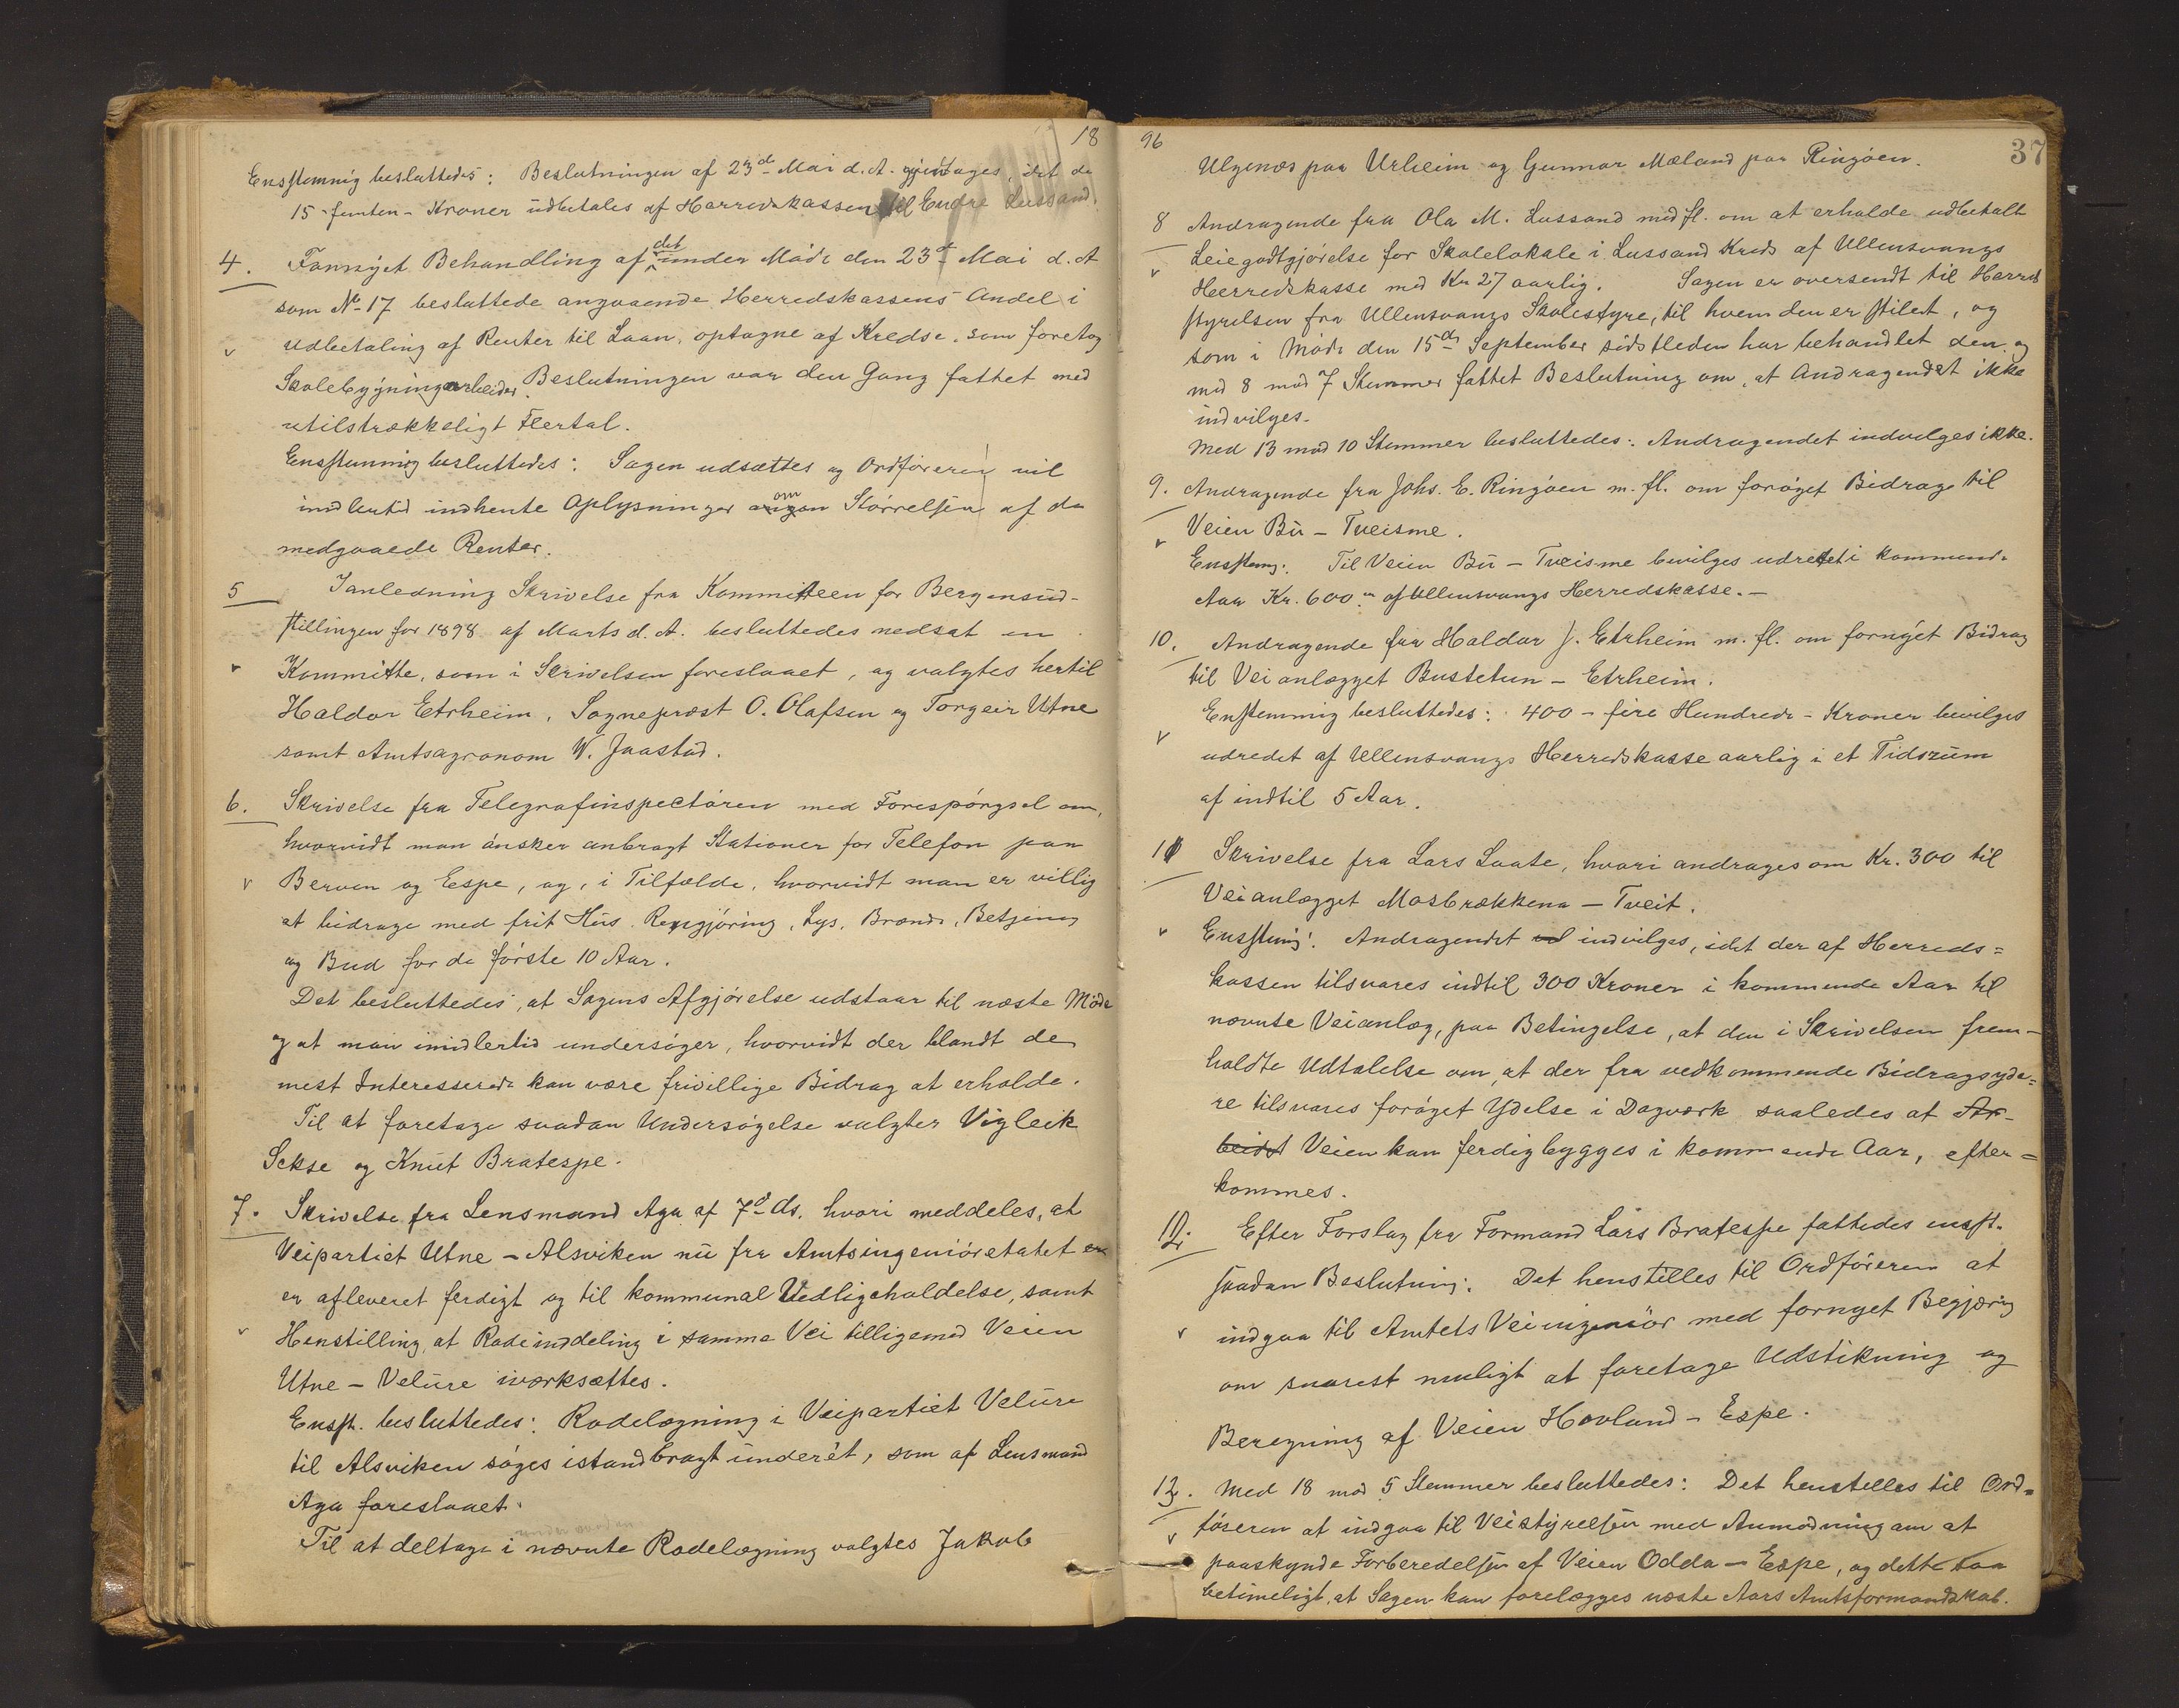 18
Enstemmig besluttedes: Beslutningen af 23d Mai d. A. gjentages, idet de
15 - femten - Kroner udbetales af Herredskassen til Endre Lussand.
4. Fornyet Behandling af det under Møde den 23d Mai d. A
som No 17 besluttede angaaende Herredskassens Andel i
Udbetaling af Renter til Laan, optagne af Kredse, som foretog
Skolebygningsarbeider. Beslutningen var den Gang fattet med
utilstrækkeligt Flertal.
Enstemmig besluttedes: Sagen udsættes og Ordføreren vil
imidlertid indhente Oplysninger om Størrelsen af de
medgaaede Renter.
5 I anledning Skrivelse fra Kommitteen for Bergensud-
stillingen for 1898 af Marts d. A. besluttedes nedsat en
v Kommitte, som i Skrivelsen foreslaaet, og valgtes hertil
Haldor Etrheim, Sogneprest O. Olafsen og Torgeir Utne
samt Amtsagronom W. Jaastad.
6. Skrivelse fra Telegrafinspectøren med Forespørgsel om,
hvorvidt man ønsker anbragt Stationer for Telefon paa
v Berven og Espe, og, i Tilfælde, hvorvidt man er villig
at bidrage med frit Hus. Rengjøring, Lys, Brænde, Betjening
og Bud for de første 10 Aar.
Det besluttedes, at Sagens Afgjørelse udstaar til næste Møde
og at man imidlertid undersøger, hvorvidt der blandt de
mest Interesserede kan være frivillige Bidrag at erholde.
Til at foretage saadan Undersøgelse valgtes Vigleik
Sekse og Knut Bratespe.
7. Skrivelse fra Lensmand Aga af 7d ds. hvori meddeles, at
Veipartiet Utne - Alsviken nu fra Amtsingeniøretatet er
er afleveret ferdigt og til kommunal Vedligeholdelse, samt
v Henstilling, at Rodeinddeling i samme Vei tilligemed Veien
Utne - Velure iværksættes.
Enst. besluttedes: Rodelægning i Veipartiet Velure
til Alsviken søges istandbragt underét, som af Lensmand
Aga foreslaaet.
Til at deltage i nævnte Rodelægning valgtes Jakob
96
37
Ulgenæs paa Urheim og Gunnar Mæland paa Ringøen.
8 Andragende fra Ola M. Lussand med fl. om at erholde udbetalt
Leiegodtgjørelse for Skolelokale i Lussand Kreds af Ullensvangs
v Herredskasse med Kr 27 aarlig. Sagen er oversendt til Herred
styrelsen fra Ullensvangs Skolestyre, til hvem den er stilet, og
som i Møde den 15de September sidstleden har behandlet den og
med 8 mod 7 Stemmer fattet Beslutning om, at Andragendet ikke
indvilges.
Med 13 mod 10 Stemmer besluttedes: Andragendet indvilges ikke.
9. Andragende fra Johs. E. Ringøen m. fl. om forøget Bidrag til
Veien Bu - Tveisme.
v Enstemg: Til Veien Bu - Tveisme bevilges udredet i kommende
Aar Kr. 600 af Ullensvangs Herredskasse. -
10. Andragende fra Haldor J. Etrheim m. fl. om fornyet Bidrag
til Veianlægget Bustetun - Etrheim.
Enstemmig besluttedes: 400 - fire Hundrede - Kroner bevilges
v udredet af Ullensvangs Herredskasse aarlig i et Tidsrum
af indtil 5 Aar.
11 Skrivelse fra Lars Laate, hvori andrages om Kr. 300 til
Veianlægget Mosbrækkena - Tveit.
v Enstemg: Andragendet ud indvilges, idet der af Herreds=
kassen tilsvares indtil 300 Kroner i kommende Aar til
nævnte Veianlæg, paa Betingelse, at den i Skrivelsen frem-
holdte Udtalelse om, at der fra vedkommende Bidragsyde=
re tilsvares forøget Ydelse i Dagværk saaledes at Ar-
beidet Veien kan ferdigbygges i kommende Aar, efter=
kommes.
12. Efter Forslag fra Formand Lars Bratespe fattedes enst.
saadan Beslutning: Det henstilles til Ordføreren at
v indgaa til Amtets Veiingeniør med fornyet Begjæring
om snarest muligt at foretage Udstikning og
Beregning af Veien Hovland - Espe.
13. Med 18 mod 5 Stemmer besluttedes: Det henstilles til Ord=
v føreren at indgaa til Veistyrelsen med Anmodning om at
paaskynde Forberedelsen af Veien Odda - Espe, og dette saa
betimeligt, at Sagen kan forelægges næste Aars Amtsformandskab.